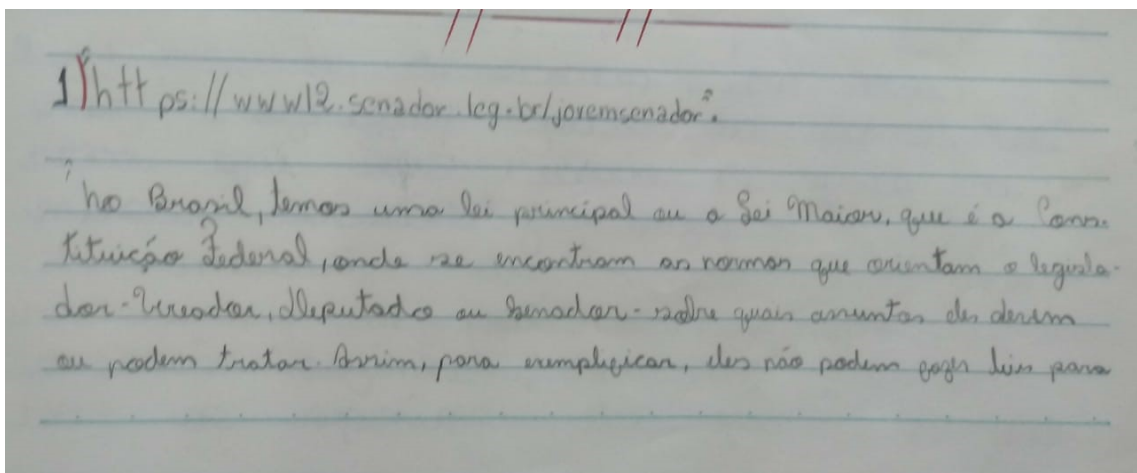 1) "https://www12.senador.leg.br/jovemsenador".
"No Brasil, temos uma lei principal ou a Lei Maior, que é a Cons-
tituição Federal, onde se encontram as normas que orientam o legisla-
dor - Vereador, Deputado ou Senador - sobre quais assuntos eles devem
ou podem tratar. Assim, para exemplificar, eles não podem fazer leis para